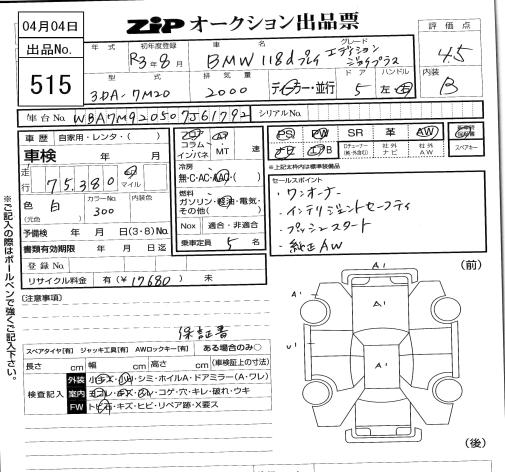 04月04日
ZIP オークション出品票
出品No.
515
年式
初年度登録
R3年8月
車名
BMW 118d プレイ
グレード
エディション
ジョイプラス
評価点
4.5
型式
3DA-7M20
排気量
2000
ディーラー・並行
ドア
5
ハンドル
左・右
内装
B
車台No.
WBA7M920507J61792
シリアルNo.
車歴
自家用・レンタ・( )
車検
年 月
走行
75,380
マイル
色
白
(元色)
カラーNo.
300
内装色
予備検
年 月 日(3・8)No.
書類有効期限
年 月 日迄
登録No.
リサイクル料金
有(¥17680) 未
コラム
インパネ
MT
速
冷房
無・C・AC・AAC・( )
燃料
ガソリン・軽油・電気・
その他( )
Nox
適合・非適合
乗車定員
5名
PS
PW
SR
革
AW
ナビ
社外
AW
スペアキー
※上記太枠内は標準装備品
セールスポイント
・ワンオーナー
・インテリジェントセーフティ
・プッシュスタート
・純正AW
(注意事項)
保証書
スペアタイヤ[有]
ジャッキ工具[有]
AWロックキー[有]
ある場合のみ○
長さ
cm
幅
cm
高さ
cm
(車検証上の寸法)
検査記入
外装
小キズ・小凹・シミ・ホイルA・ドアミラー(A・ワレ)
室内
ヨゴレ・キズ・スレ・コゲ・穴・キレ・破れ・ウキ
FW
トビ石・キズ・ヒビ・リペア跡・X要ス
※ご記入の際はボールペンで強くご記入下さい。
(前)
A1
A1
A1
A1
U1
A1
(後)